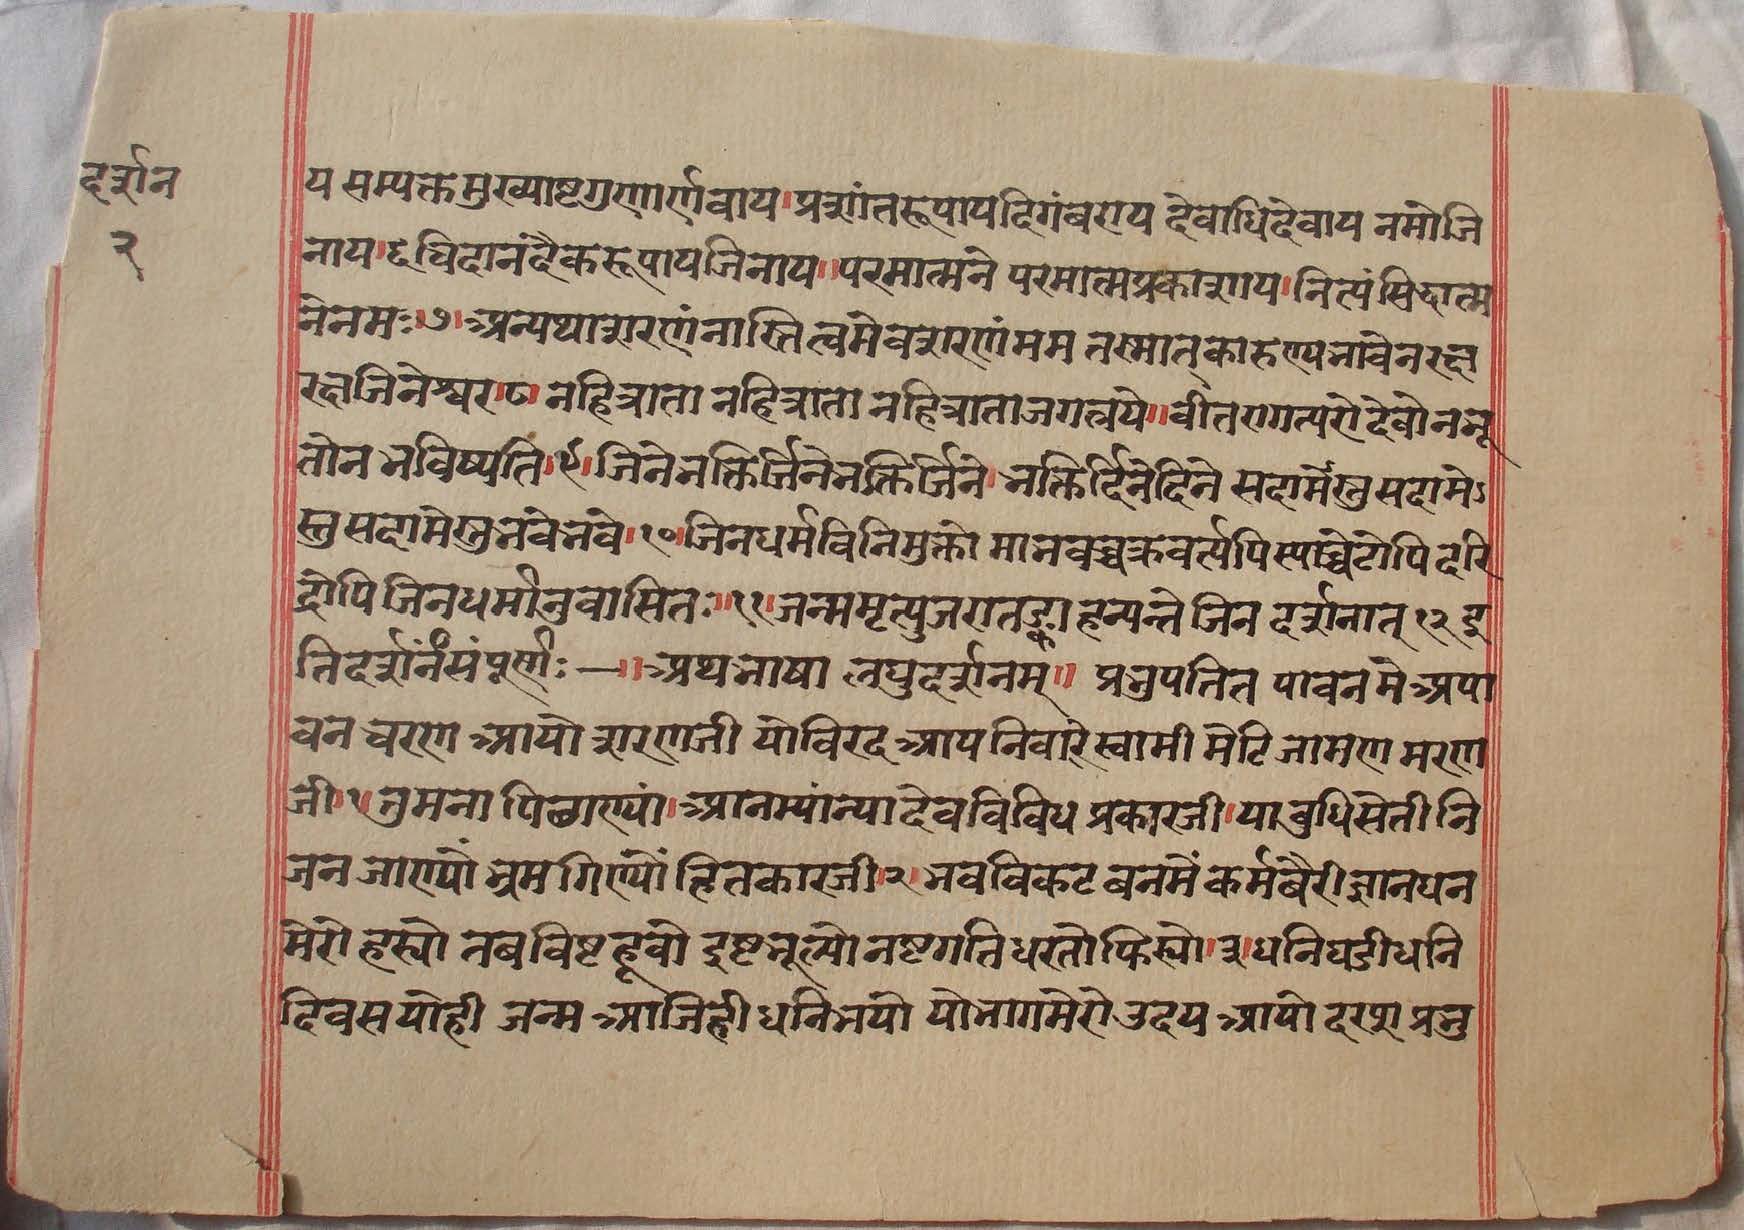 दर्शन
२
य सम्यक्तमुख्याष्टगुणार्णवाय।प्रशांतरूपायदिगंबराय देवाधिदेवाय नमोजि
नाय।६चिदानंदैकरूपायजिनाय॥परमात्मने परमात्मप्रकाशाय।नित्यंसिद्धात्म
नेनमः।७।अन्यथाशरणंनास्तित्वमेवशरणंमम तस्मात्कारुण्यभावेनरक्ष
रक्षजिनेश्वर।८।नहित्राता नहित्राता नहित्राताजगत्त्रये॥वीतरागत्परोदेवोनभू
तोन भविष्यति।९।जिनेभक्तिर्जिनेभक्तिर्जिने।भक्तिर्दिनेदिने सदामेंस्तुसदामेऽ
स्तुसदामेस्तुभवेभवे।१०।जिनधर्मविनिमुक्तो मानवच्चक्रवर्त्यपिस्याच्चेटोपिदरि
द्रोपिजिनधर्मानुवासितः॥११॥जन्ममृत्युजरातङ्का हन्यन्ते जिन दर्शनात् १२ इ
तिदर्शनंसंपूर्णः—॥अथभाषा लघुदर्शनम्॥ प्रभुपतित पावनमेअपा
वन चरण आयो शरणजी योविरद आपनिवारेस्वामी मेटि जामण मरण
जी।१॥तुमना पिछाण्यां।आनम्यांन्यादेवविविध प्रकारजी।याबुधिसेती नि
जन जाण्यों भ्रमगिण्यों हितकारजी।२।भवविकट बनमें कर्मबैरी ज्ञानधन
मेरो हर्यो तबविष्टहूवो दुष्टभूल्यो नष्टगतिधरतोफिर्यो।३।धनिघडीधनि
दिवसयोही जन्म आजिही धनिभयो योभागमेरो उदय आयो दरश प्रभु